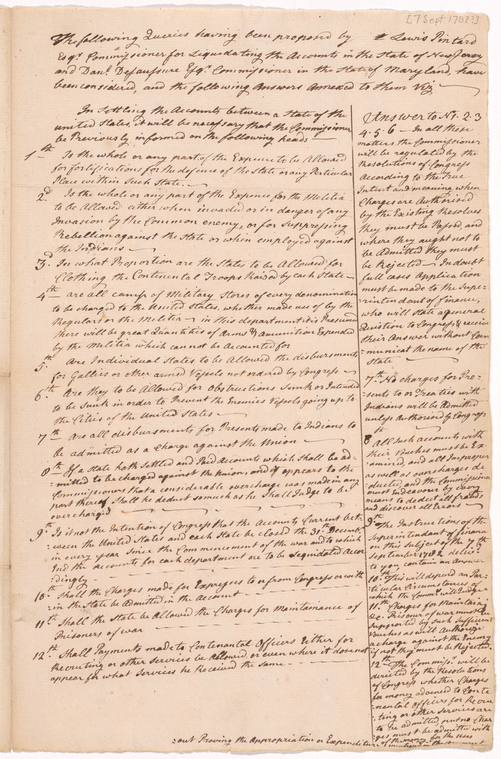 [7 Sept 1782]
The following Queries having been proposed by Lewis Pintard
Esqr. Commissioner for Liquidating the Accounts in the State of New Jersey
and Danl. Defaussure Esqr. Commissioner in the State of Maryland have
been considered, and the following Answers Annexed to them Viz
In Settling the Accounts between a State of the
united States, it will be necessary that the Commissioner
be Previously informed on the following heads
1st Is the whole or any part of the Expence to be Allowed
for fortifications for the defence of the State or any Particular
Place within Such State
2d Is the whole or any part of the Expense for the Militia
to be Allowed either when invaded or in danger of any
Invasion by the Common enemy, or for Suppressing
Rebellion against the State or when employed against
the Indians
3d In what Proportion are the States to be Allowed for
Clothing the Continental Troops Raised by each State
4th are all camp or Military Stores of every denomination
to be charged to the United States, whether made use of by the
Regulars or the Militia in this department its Presumed
there will be great Quantities of Arms & Amunition Expended
by the Militia which cannot be Accounted for
5th Are Individual States to be Allowed the disbursments
for Gallies or other armed Vessels not ordered by Congress
6th Are they to be Allowed for Obstructions Sunk or Intended
to be Sunk in order to Prevent the Enemies Vessels going up to
the Cities of the United States
7th Are all disbursments for Presents made to Indians to
be admitted as a Charge against the Union
8th If a State hath Settled and Paid Accounts which Shall be ad=
=mitted to be charged against the Union, and if appears to the
Commissioners that a considerable overcharge was made in any
part thereof Shall he deduct so much as he Shall Judge to be
overcharged
9th Is it not the Intention of Congress that the Accounts Current bet=
=ween the United States and each State be closed the 31st Decemr.
in every year Since the Commencement of the war and to which
End the accounts for each department are to be liquidated Accor
dingly
10th Shall the Charges made for Expresses to or from Congress or with
=in the State be Admitted in the Account
11th Shall the State be Allowed the Charges for Maintanance of
Prisoners of war
12th Shall Payments made to Continental Officers Either for
Recruting or other Services be Allowed or even where it does not
appear for what Services he Received the Same
Answer to No. 1. 2. 3
4. 5. 6 In all these
matters the Commissioner
will be regulated by the
Resolutions of Congress
According to the True
Intent and meaning when
Charges are Authorised
by the Existing Resolves
they must be Passed and
where they aught not to
be admitted they must
be Rejected In doubt
full cases Application
must be made to the Supe=
=rintendant of finance,
who will State a general
Question to Congress & receive
their Answer without Com
=municating the name of the
State
7th No charges for Pre=
=sents to or Treaties with
Indians will be Admitted
unless Authorised by Congress
8 All Such accounts with
their Vouchers must be Ex=
=amined and all improper
and that overcharges de=
ducted, and the Commissioner
must Endeavor by Every
means to detect all frauds,
and discover all errors
9th The Instructions of the
Superintendant of finance
on this Subject the 7th
September 1782 deliver'd
to you contain an answer
10th This will depend on Par=
=ticular Circumstances of
which the Commr. will Judge
11th Charges for Maintaining
Prisoners of war must be
Supported by Such Sufficient
Vouchers as will Authorize
a charge against the Enemy
if not they must be Rejected
12th The Commissr. will be
directed by the Resolutions
of Congress whether Charges
for money advanced to Conti
=nental Officers for Recrui
=ting or other Services are
to be admitted but no Char
=ges must be admitted with
=out Proving the Appropriation or Expenditure